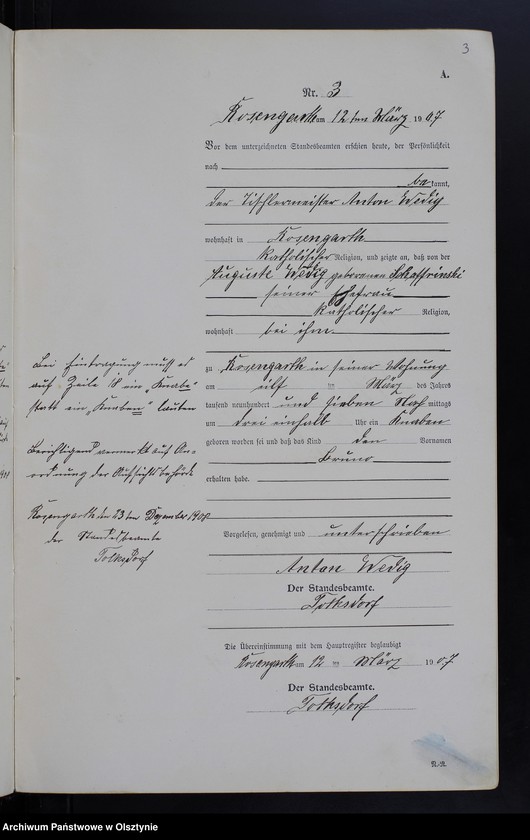 3
A.
Nr. 3
Rosengarth am 12 ten März 1907
Vor dem unterzeichneten Standesbeamten erschien heute, der Persönlichkeit
nach
be kannt,
der Tischlermeister Anton Wedig
wohnhaft in Rosengarth
katholischer Religion, und zeigte an, daß von der
Auguste Wedig geborenen
seiner Ehefrau
katholischer Religion,
wohnhaft bei ihm
zu Rosengarth in seiner Wohnung
am elf ten März des Jahres
tausend neunhundert und sieben Nach mittags
um drei einhalb Uhr ein Knaben
geboren worden sei und daß das Kind den Vornamen
Bruno
erhalten habe.
Vorgelesen, genehmigt und unterschrieben
Anton Wedig
Der Standesbeamte.
Tolksdorf
Die Übereinstimmung mit dem Hauptregister beglaubigt
Rosengarth am 12 ten März 1907
Der Standesbeamte.
Tolksdorf
N.-R.
Bei Eintragung muß es
auf Zeile 18 ein „Knabe“
statt ein „Knaben“ lauten
Berichtigend vermerkt auf An-
ordnung der Aufsichtsbehörde
Rosengarth den 23 ten Dezember 1908
der Standesbeamte
Tolksdorf
Archiwum Państwowe w Olsztynie